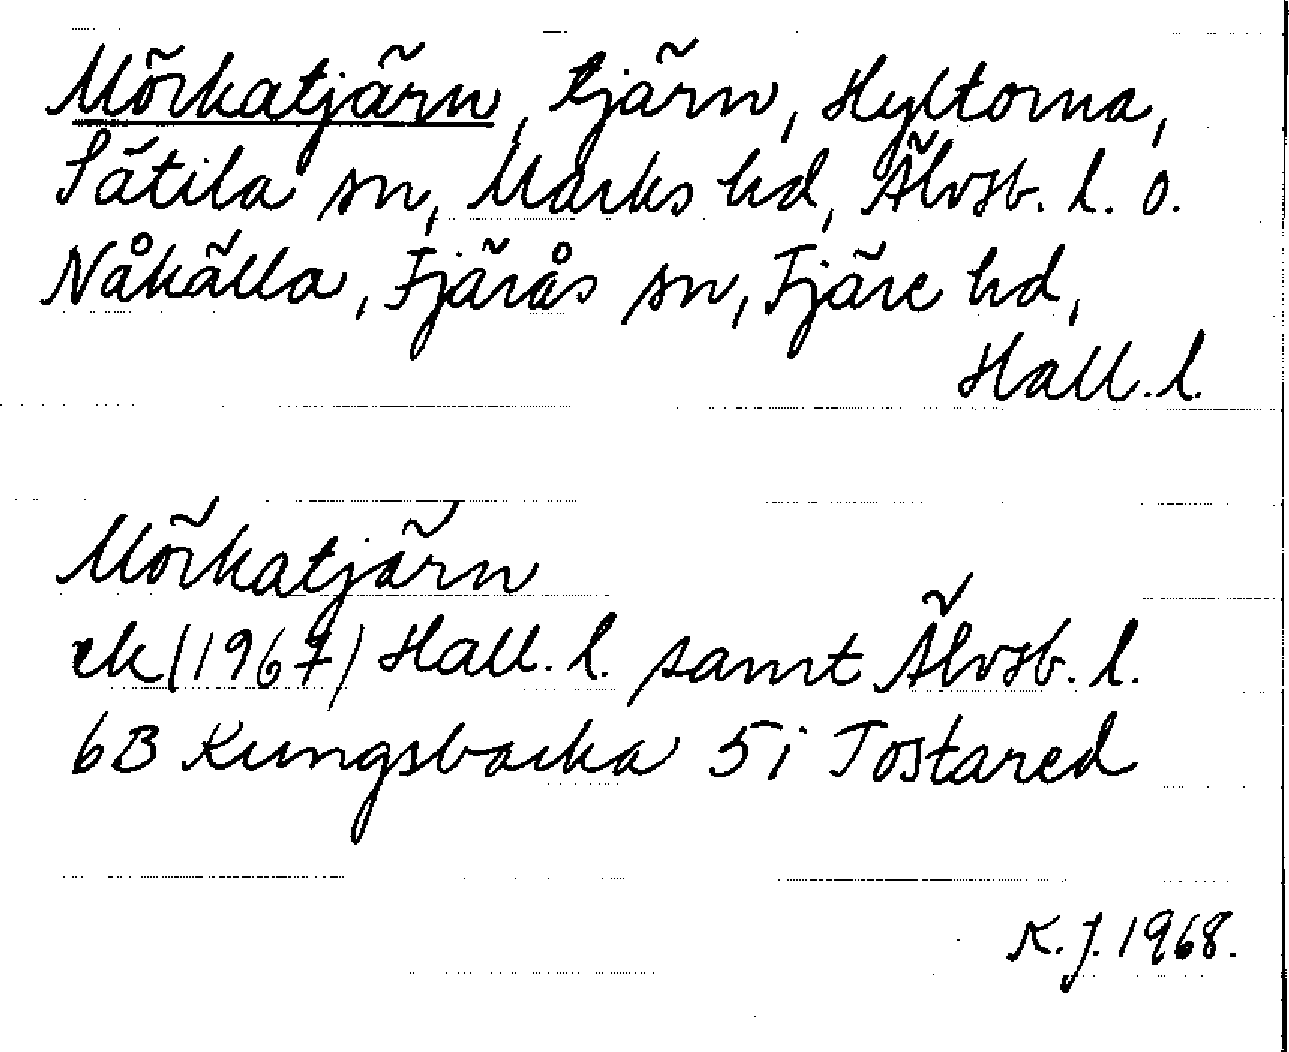 Mörkatjärn, tjärn, Hyltorna,
Sätila sn, Marks hd, Älvsb. l. o.
Nåkälla, Fjärås sn, Fjäre hd,
Hall. l.
Mörkatjärn
ek (1967) Hall. l. samt Älvsb. l.
6B Kungsbacka 5i Tostared
K. J. 1968.